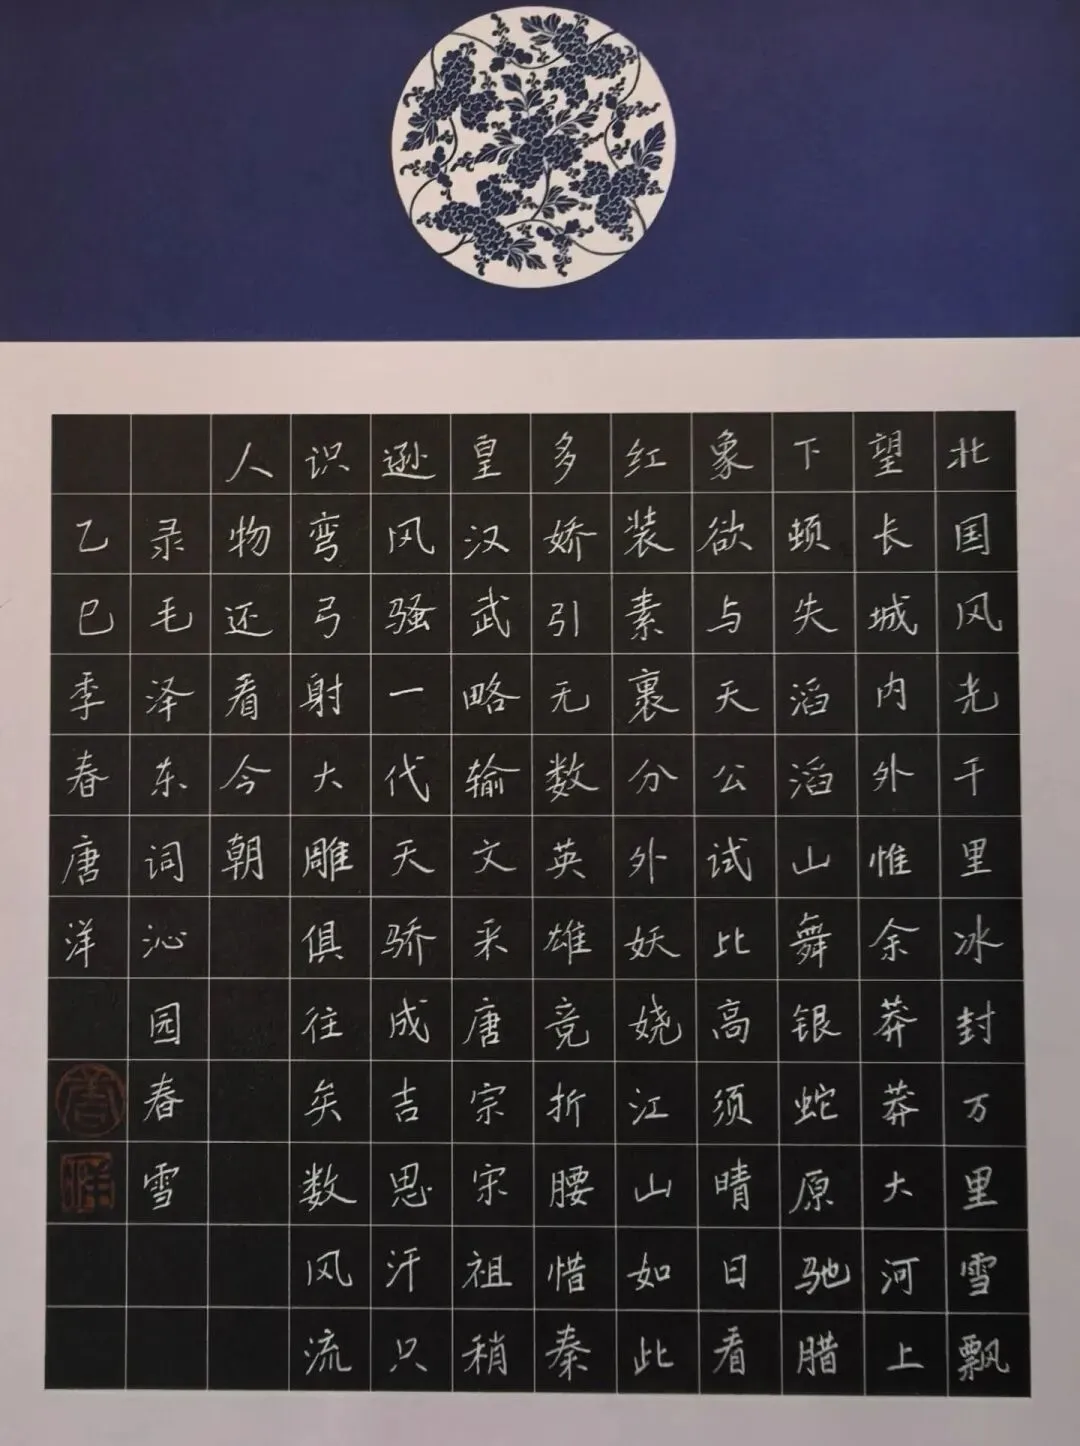 北国风光千里冰封万里雪飘
望长城内外惟余莽莽大河上
下顿失滔滔山舞银蛇原驰腊
象欲与天公试比高须晴日看
红装素裹分外妖娆江山如此
多娇引无数英雄竞折腰惜秦
皇汉武略输文采唐宗宋祖稍
逊风骚一代天骄成吉思汗只
识弯弓射大雕俱往矣数风流
人物还看今朝
录毛泽东词沁园春雪
乙巳季春唐洋
唐
洋